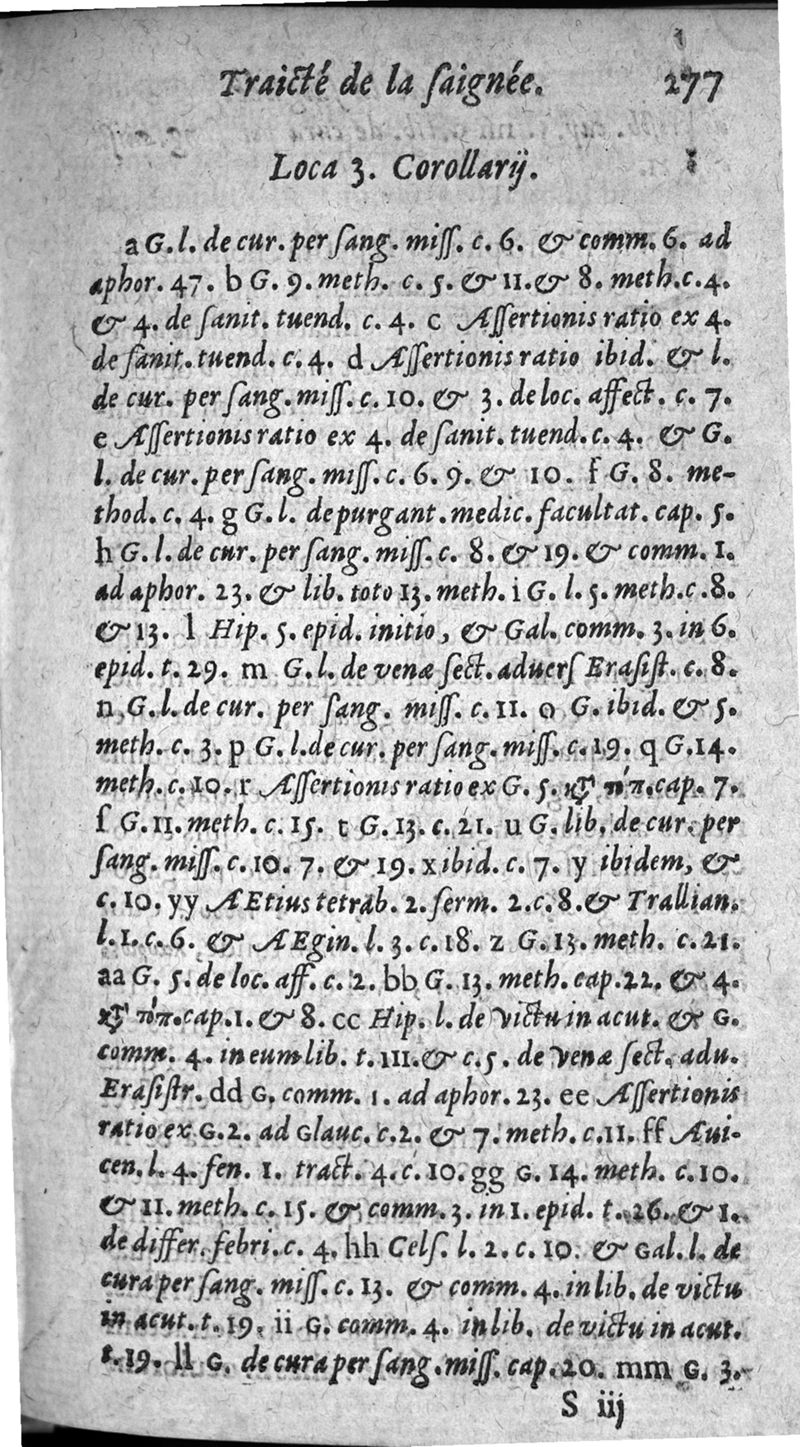 Traicté de la ſaignée. 277
Loca 3. Corollarij.
a G. l. de cur. per ſang. miſſ. c. 6. & comm. 6. ad
aphor. 47. b G. 9. meth. c. 5. & 11. & 8. meth. c. 4.
& 4. de ſanit. tuend. c. 4. c Aſſertionis ratio ex 4.
de ſanit. tuend. c. 4. d Aſſertionis ratio ibid. & l.
de cur. per ſang. miſſ. c. 10. & 3. de loc. affect. c. 7.
e Aſſertionis ratio ex 4. de ſanit. tuend. c. 4. & G.
l. de cur. per ſang. miſſ. c. 6. 9. & 10. f G. 8. me-
thod. c. 4. g G. l. de purgant. medic. facultat. cap. 5.
h G. l. de cur. per ſang. miſſ. c. 8. & 19. & comm. 1.
ad aphor. 23. & lib. toto 13. meth. i G. l. 5. meth. c. 8.
& 13. l Hip. 5. epid. initio, & Gal. comm. 3. in 6.
epid. t. 29. m G. l. de venæ ſect. aduerſ Eraſiſt. c. 8.
n G. l. de cur. per ſang. miſſ. c. 11. o G. ibid. & 5.
meth. c. 3. p G. l. de cur. per ſang. miſſ. c. 19. q G. 14.
meth. c. 10. r Aſſertionis ratio ex G. 5. κτ̀ τόπ. cap. 7.
ſ G. 11. meth. c. 15. t G. 13. c. 21. u G. lib. de cur. per
ſang. miſſ. c. 10. 7. & 19. x ibid. c. 7. y ibidem, &
c. 10. yy AEtius tetrab. 2. ſerm. 2. c. 8. & Trallian.
l. 1. c. 6. & AEgin. l. 3. c. 18. z G. 13. meth. c. 21.
aa G. 5. de loc. aff. c. 2. bb G. 13. meth. cap. 22. & 4.
κτ̀ τόπ. cap. 1. & 8. cc Hip. l. de victu in acut. & G.
comm. 4. in eum lib. t. 111. & c. 5. de venæ ſect. adu.
Eraſiſtr. dd G. comm. 1. ad aphor. 23. ee Aſſertionis
ratio ex G. 2. ad Glauc. c. 2. & 7. meth. c. 11. ff Aui-
cen. l. 4. fen. 1. tract. 4. c. 10. gg G. 14. meth. c. 10.
& 11. meth. c. 15. & comm. 3. in 1. epid. t. 26. & 1.
de differ. febri. c. 4. hh Celſ. l. 2. c. 10. & Gal. l. de
cura per ſang. miſſ. c. 13. & comm. 4. in lib. de victu
in acut. t. 19. ii G. comm. 4. in lib. de victu in acut.
t. 19. ll G. de cura per ſang. miſſ. cap. 20. mm G. 3.
S iij